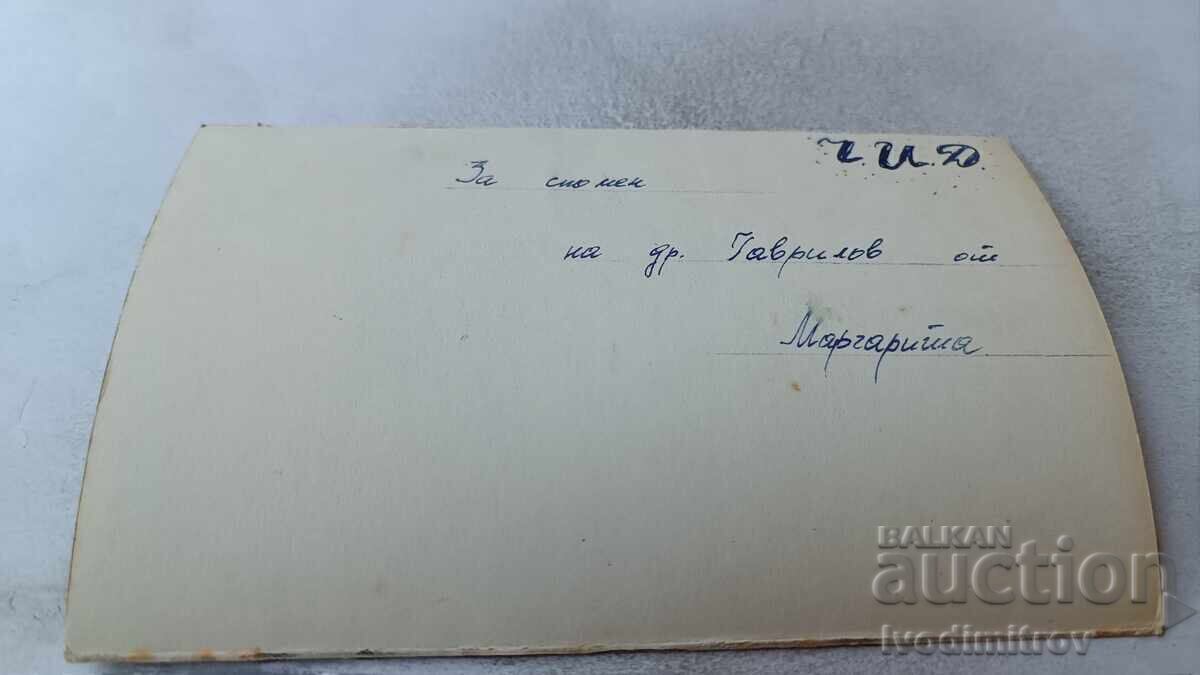 Ч.И.Д.
За спомен
на др. Гаврилов от
Маргарита
BALKAN
auction
Ivodimitrov